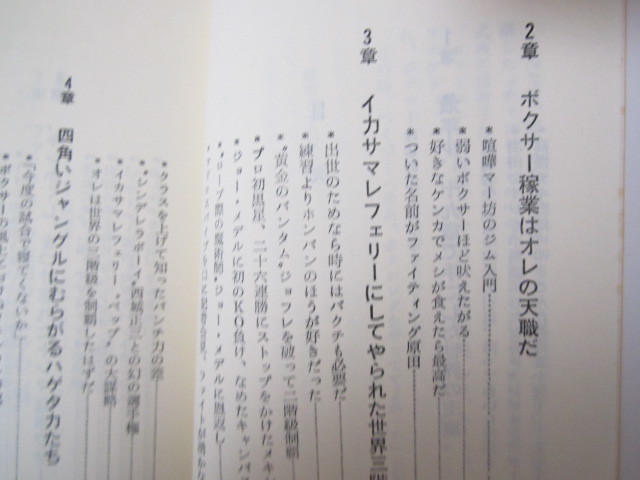 2章 ボクサー稼業はオレの天職だ
*喧嘩マー坊のジム入門
*弱いボクサーほど吠えたがる
*好きなケンカでメシが食えたら最高だ
*ついた名前がファイティング原田
3章 イカサマレフェリーにしてやられた世界三階
*出世のためなら時にはバクチも必要だ
*練習よりホンバンのほうが好きだった
*"黄金のバンタム"ジョフレを破って二階級制覇
*プロ初黒星、二十六連勝にストップをかけたメキシ
*ジョー・メデルに初のKO負け、なめたキャンバス
*"ロープ際の魔術師"ジョー・メデルに恩返し
*クラスを上げて知ったパンチ力の差
*"シンデレラボーイ"西城正三との幻の選手権
*イカサマレフェリー"ペップ"の大謀略
*オレは世界の三階級を制覇したはずだ
4章 四角いジャングルにむらがるハゲタカたち
*「今度の試合で寝てくないか」